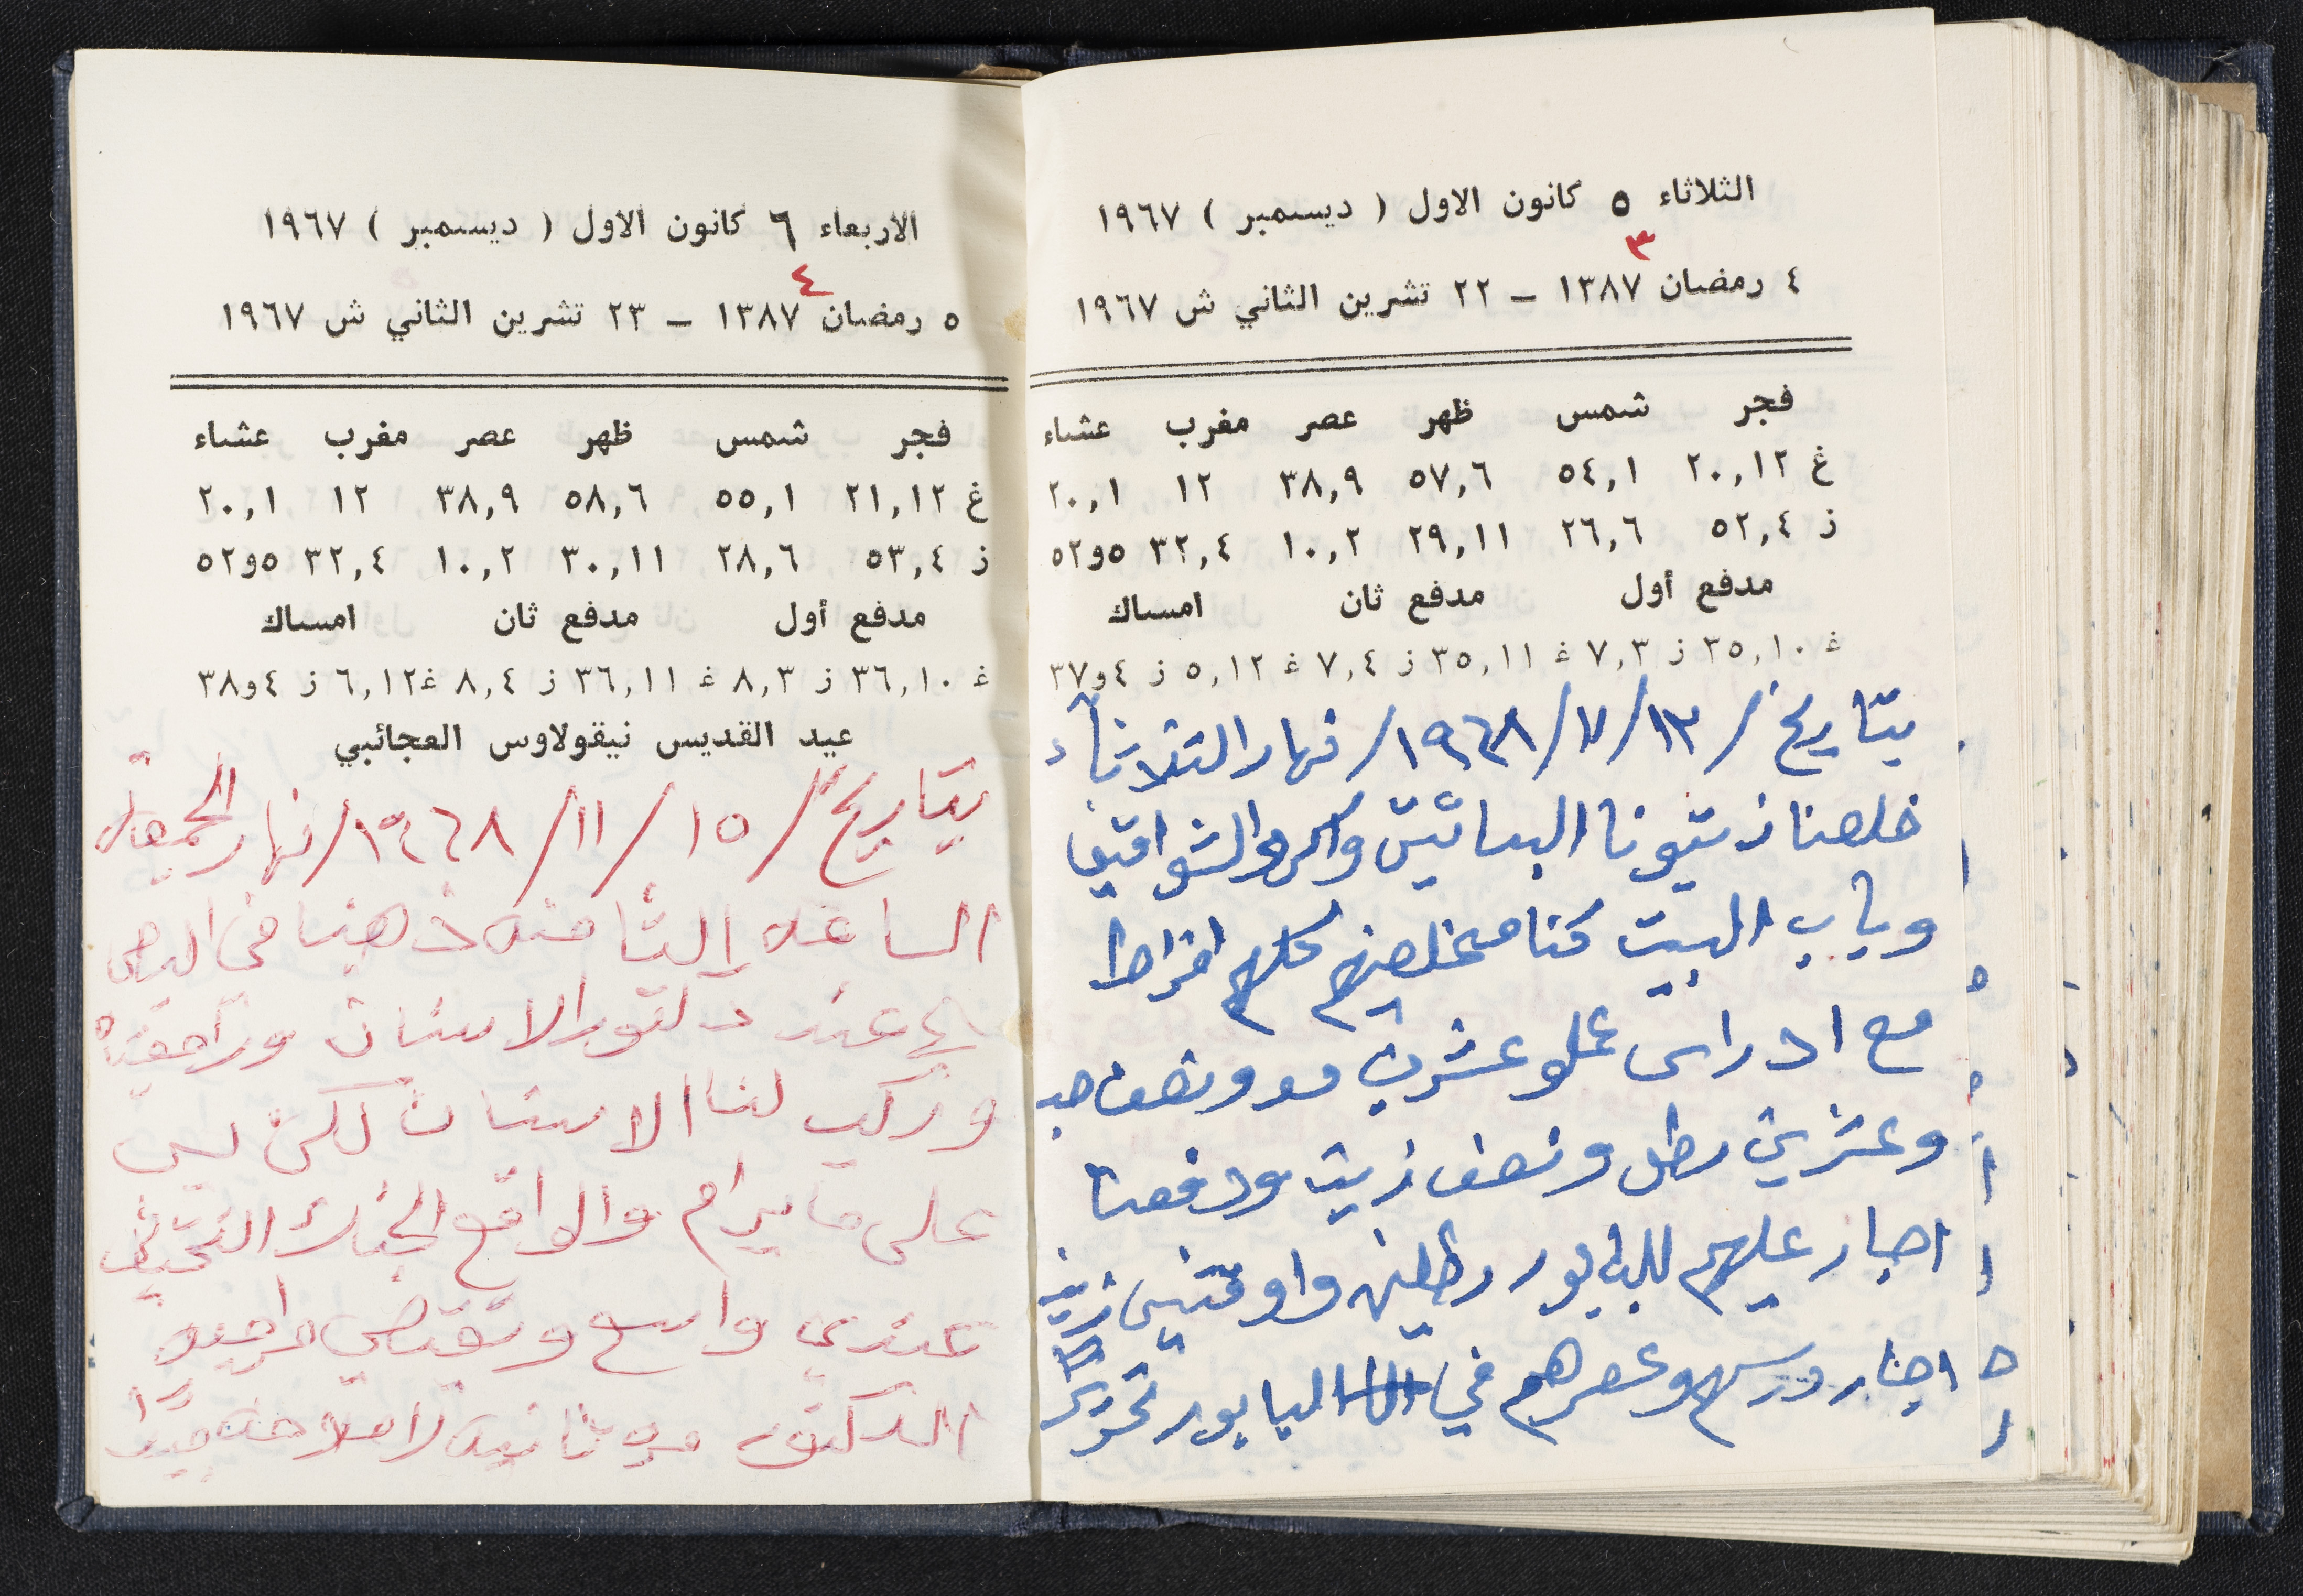 الثلاثاء ٥ كانون الاول ( ديسمبر ) ١٩٦٧
٣
٤ رمضان ١٣٨٧ – ٢٢ تشرين الثاني ش ١٩٦٧
فجر شمس ظهر عصر مغرب عشاء
غ ٢٠,١٢ ٥٤,١ ٥٧,٦ ٣٨,٩ ١٢ ٢٠,١
ز ٥٢,٤ ٢٦,٦ ٢٩,١١ ١٠,٢ ٣٢,٤ ٥و٥٢
مدفع أول مدفع ثان امساك
غ ٣٥,١٠ ز ٧,٣ غ ٣٥,١١ ز ٧,٤ غ ٥,١٢ ز ٤و٣٧
بتاريخ / ١٣/ ٧/ ١٩٦٨/ نهار الثلاثاء
خلصنا زيتونا البساتين والشواقيف
وباب البيت كنا مخلصينهم كلهم افراط
مع ادراس عملو عشرين مد ونصف حب
وعشرين رطل ونصف زيت ودفعنا
اجار عليهم للبابور رطلين واوقتين زيت
اجار ورسهم وعصرهم في البابور
الاربعاء ٦ كانون الاول ( ديسمبر ) ١٩٦٧
٤
٥ رمضان ١٣٨٧ – ٢٣ تشرين الثاني ش ١٩٦٧
فجر شمس ظهر عصر مغرب عشاء
غ ٢١,١٢ ٥٥,١ ٥٨,٦ ٣٨,٩ ١٢ ٢٠,١
ز ٥٣,٤ ٢٨,٦ ٣٠,١١ ١٠,٢ ٣٢,٤ ٥و٥٢
مدفع أول مدفع ثان امساك
غ ٣٦,١٠ ز ٨,٣ غ ٣٦,١١ ز ٨,٤ غ ٦,١٢ ز ٤و٣٨
عيد القديس نيقولاوس العجائبي
بتاريخ / ١٥ / ١١/ ١٩٦٨/ نهار الجمعة
الساعه الثامنه ذهبنا في الباص
الى عند دكتور الاسنان وراجعناه
وركب لنا الاسنان لكن ليس
على ما يرام والواقع الحنك التحتاني
عندي واسع وتقتضي مراجعة
الدكتور مره ثانيه لاصلاحه جيدا